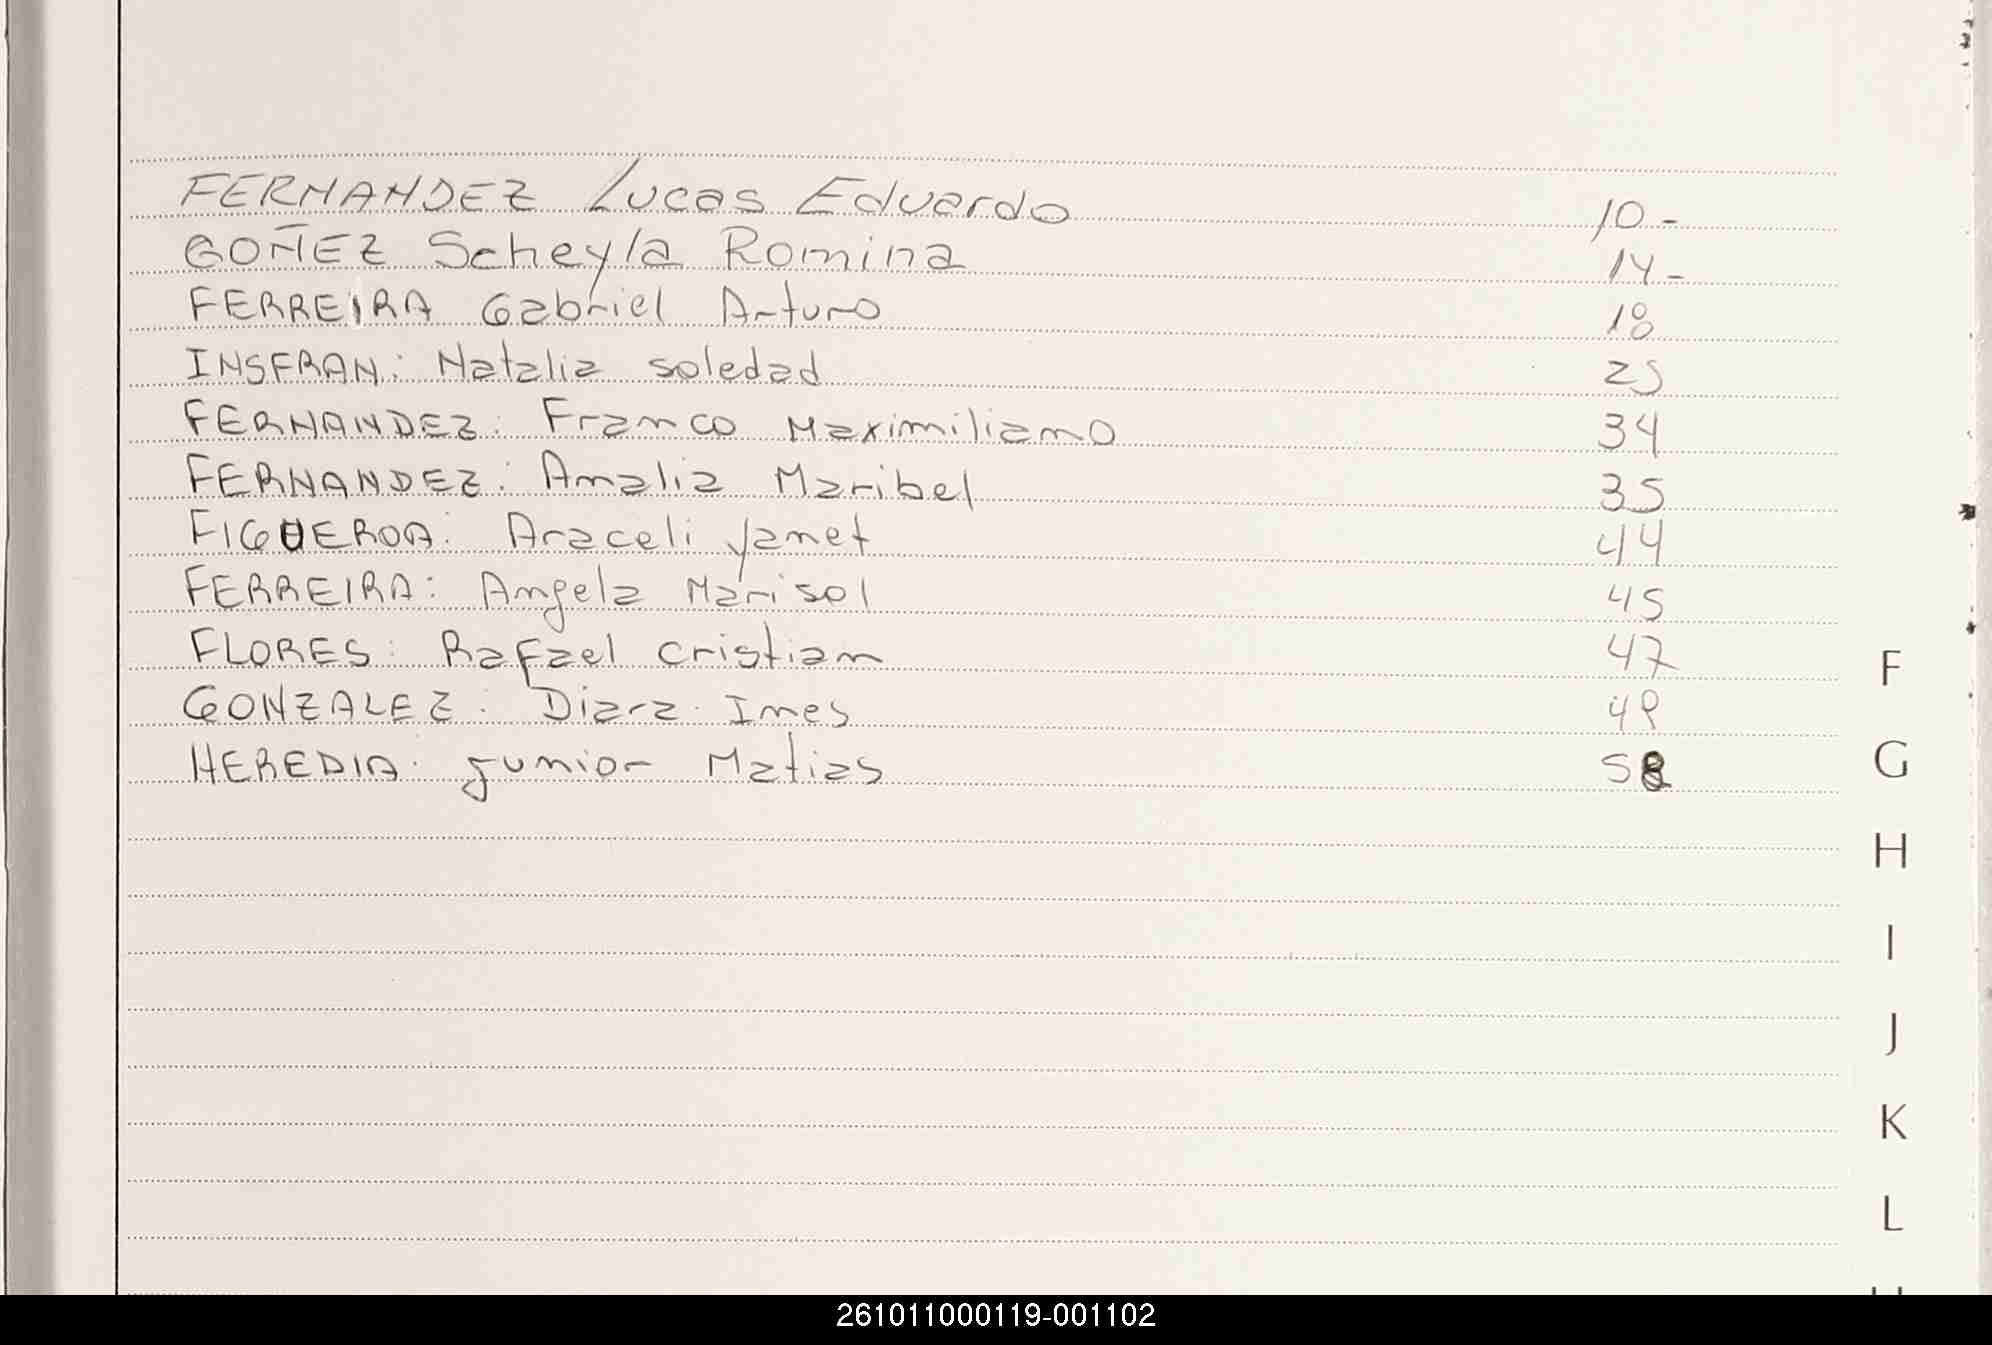 FERNANDEZ Lucas Eduardo 10-
GOÑEZ Scheyla Romina 14-
FERREIRA Gabriel Arturo 18
INSFRAN: Natalia soledad 25
FERNANDEZ: Franco Maximiliano 34
FERNANDEZ: Amalia Maribel 35
FIGUEROA: Araceli Yanet 44
FERREIRA: Angela Marisol 45
FLORES: Rafael cristian 47
F
GONZALEZ: Diara Ines 49
G
HEREDIA: junior Matias 58
H
I
J
K
L
261011000119-001102